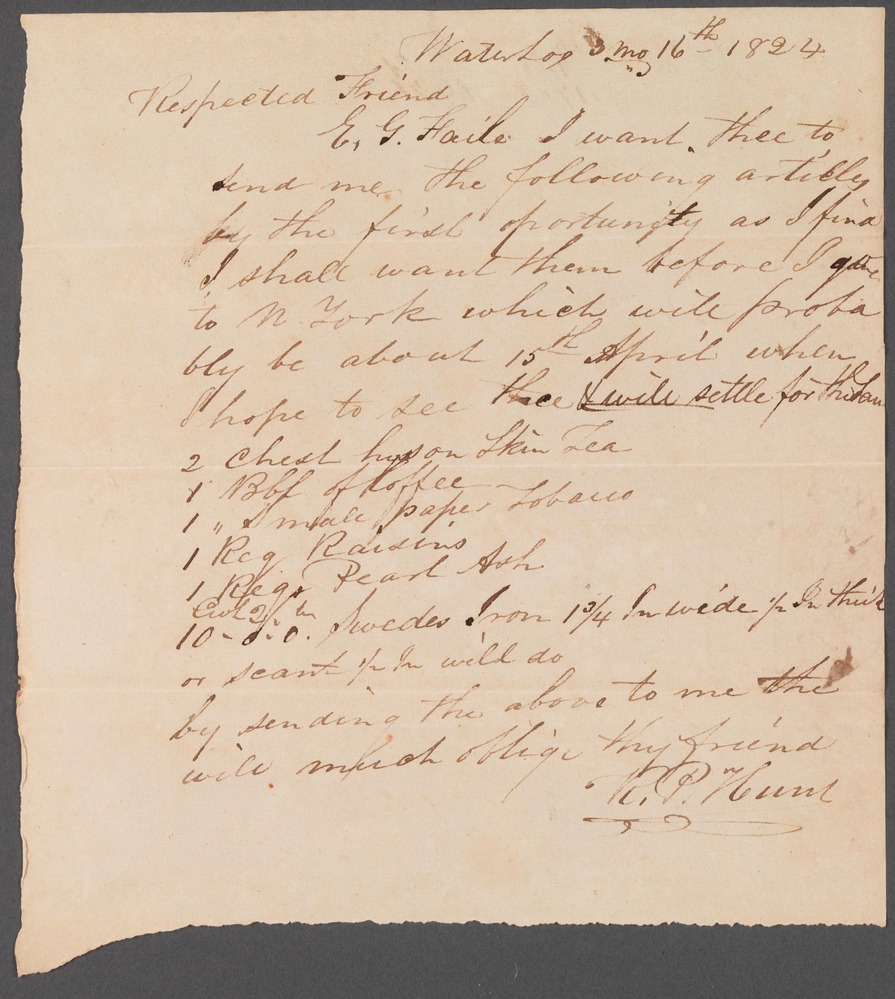 Waterloo 3 mo 16th 1824
Respected Friend
E. G. Faile I want thee to
send me the following articles
by the first oportunity as I find
I shall want them before I
to N York which will proba
bly be about 15th April when
I hope to see thee & will settle for the Sam
2 Chest hyson Skin Tea
1 Bbl of Coffee
1 " Small paper Tobacco
1 Keg Raisins
1 Keg Pearl Ash
Cwt
10 - 0. 0. Swedes Iron 1 3/4 In wide 1/2 In thick
or scant 1/2 In will do
by sending the above to me the
will much oblige thy friend
R. P. Hunt